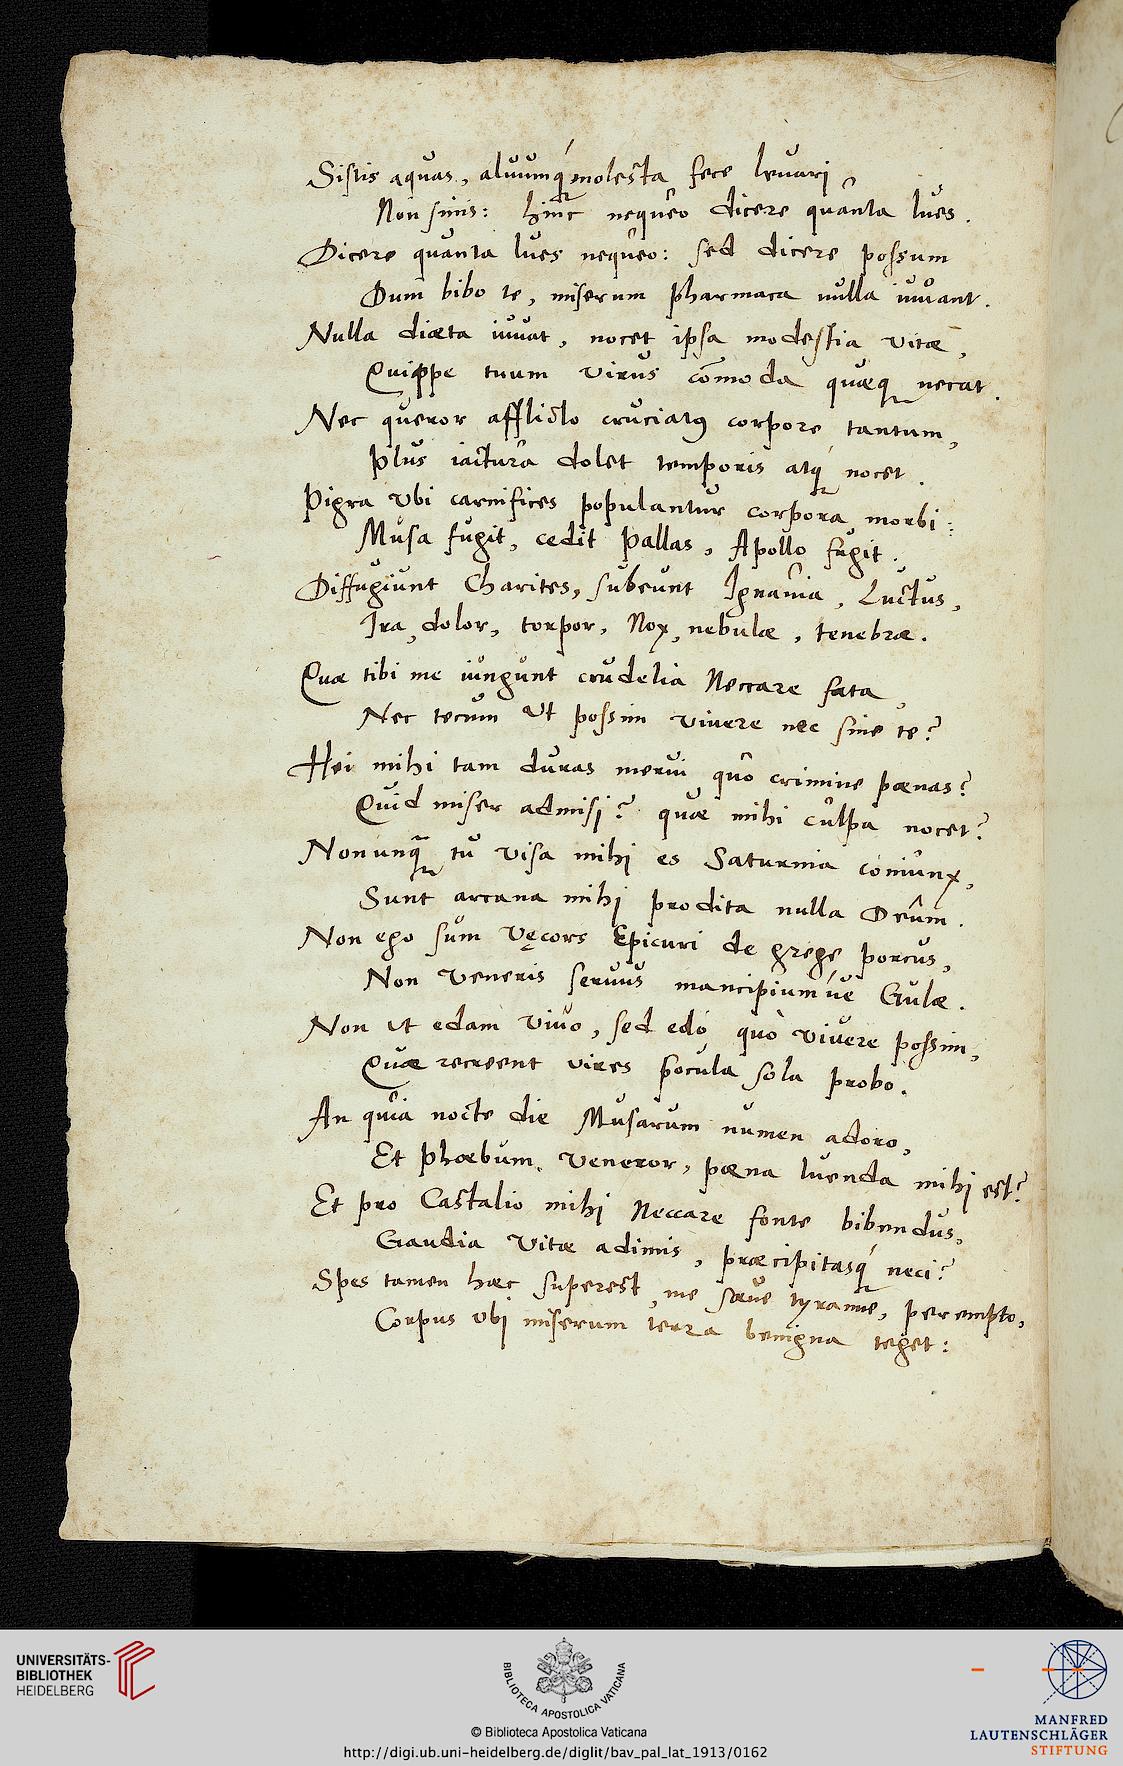 Sistis aquas, aluumq́ molesta fece leuari
Non sinis: hinc nequeo dicere quanta lues.
Dicere quanta lues nequeo: sed dicere possum
Dum bibo te, miserum pharmaca nulla iuuant.
Nulla diæta iuuat, nocet ipsa modestia vitæ,
Quippe tuum virus com̄oda quæq necat.
Nec queror afflicto cruciatꝰ corpore tantum,
Plus iactura dolet temporis atq́ nocet.
Pigra vbi carnifices populantur corpora morbi:
Musa fugit, cedit Pallas, Apollo fugit.
Diffugiunt Charites, subeunt Ignauia, Luctus,
Ira, dolor, torpor, Nox, nebulæ, tenebræ.
Quæ tibi me iungunt crudelia Neccare fata,
Nec tecum vt possim viuere nec sine te?
Hei mihi tam duras merui quo crimine pœnas?
Quid miser admisi? quæ mihi culpa nocet?
Nonunq̃ tu visa mihi es Saturnia coniunx,
Sunt arcana mihj prodita nulla Deûm.
Non ego sum vęcors Epicuri de grege porcus,
Non Veneris seruus mancipiumúe Gulæ.
Non vt edam viuo, sed edo, quò viuere possim,
Quæ recreent vires pocula sola probo.
An quia nocte die Musarum numen adoro,
Et Phœbum veneror, pœna luenda mihj est?
Et pro Castalio mihj Neccare fonte bibendus,
Gaudia vitæ adimis, præcipitasq́ neci?
Spes tamen hæc superest, me sæue tyranne, perempto,
Corpus vbj miserum terra benigna teget:
UNIVERSITÄTS-
BIBLIOTHEK
HEIDELBERG
BIBLIOTECA APOSTOLICA VATICANA
© Biblioteca Apostolica Vaticana
http://digi.ub.uni-heidelberg.de/diglit/bav_pal_lat_1913/0162
MANFRED
LAUTENSCHLÄGER
STIFTUNG